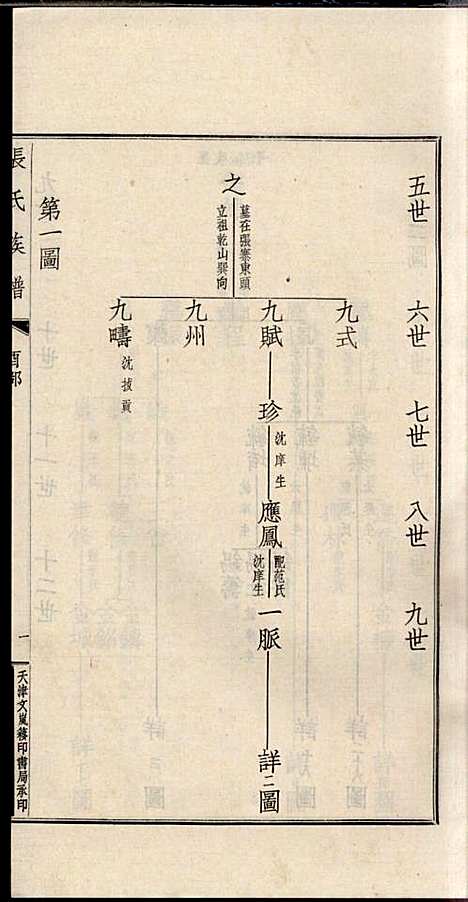 五世
六世
七世
八世
九世
之
墓在張寨東頭
立祖乾山巽向
九式
九賦
九州
九疇
沈拔貢
珍
沈庠生
應鳳
配范氏
沈庠生
一脈
詳二圖
第一圖
張氏族譜
酉部
一
天津文嵐簃印書局承印